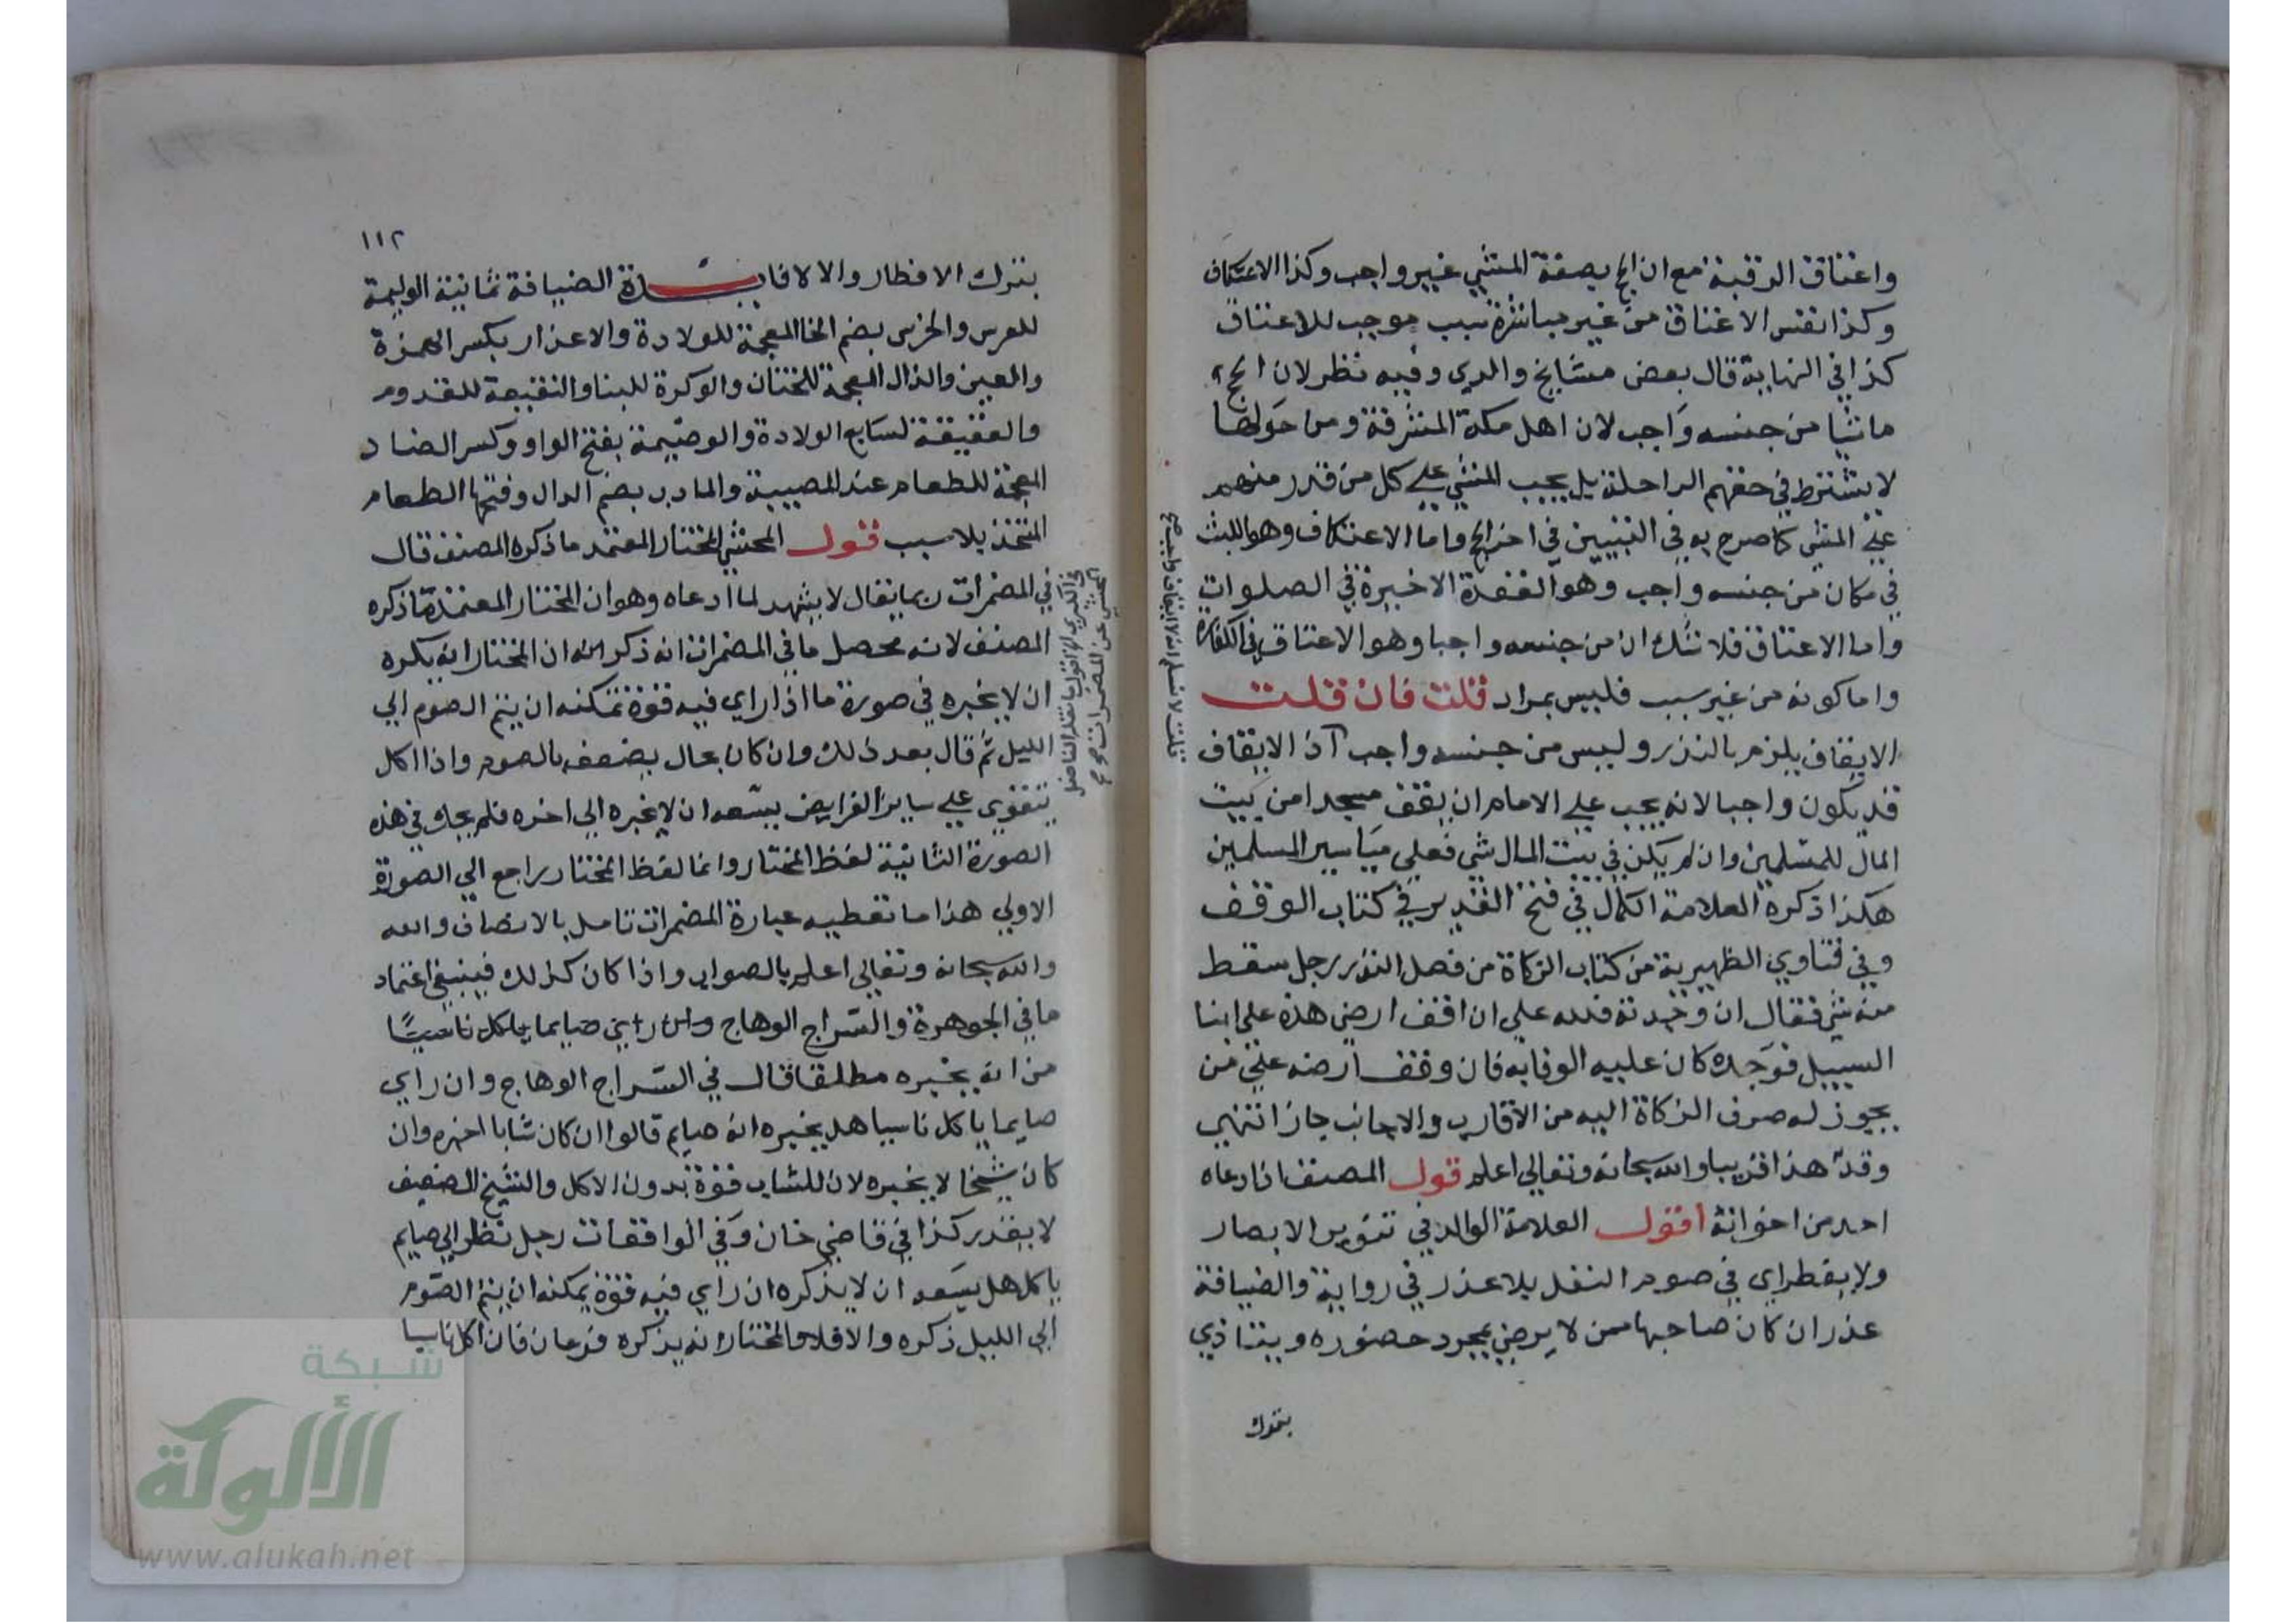 واعتاق الرقبة مع ان الحج بصفة المشي غير واجب وكذا الاعتكاف
وكذا نفس الاعتاق من غير مباشرة سبب موجب للاعتاق
كذا في النهاية قال بعض مشايخ والدي وفيه نظر لان الحج
ماشيا من جنسه واجب لان اهل مكة المشرفة ومن حولها
لا يشترط في حقهم الراحلة بل يجب المشي علي كل من قدر منهم
علي المشي كما صرح به في التبيين في اخر الحج واما الاعتكاف وهو اللبث
في مكان من جنسه واجب وهو القعدة الاخيرة في الصلوات
واما الاعتاق فلا شك ان من جنسه واجبا وهو الاعتاق في الكفارة
واما كونه من غير سبب فليس بمراد قلت فان قلت
الايقاف يلزم بالنذر وليس من جنسه واجب اذ الايقاف
قد يكون واجبا لانه يجب علي الامام ان يقف مسجدا من بيت
المال للمسلمين وان لم يكن في بيت المال شي فعلي مياسير المسلمين
هكذا ذكره العلامة الكمال في فتح القدير في كتاب الوقف
وفي فتاوي الظهيرية من كتاب الزكاة من فصل النذر رجل سقط
منه شي فقال ان وجدته فلله علي ان اقف ارضي هذه علي ابنا
السبيل فوجده كان عليه الوفا به فان وقف ارضه علي من
يجوز له صرف الزكاة اليه من الاقارب والاجانب جاز انتهي
وقد هذا قريبا والله سبحانه وتعالي اعلم قول المصنف اذا دعاه
احد من اخوانه اقول العلامة الوالد في تنوير الابصار
ولا يفطر اي في صوم النفل بلا عذر في رواية والضيافة
عذر ان كان صاحبها ممن لا يرضي بمجرد حضوره ويتاذي
بترك
قلت لا نسلم ان الايقاف واجب صح
١١٢
بترك الافطار والا لا فايدة الضيافة ثمانية الوليمة
للعرس والخرس بضم الخا المعجمة للولادة والاعذار بكسر الهمزة
والعين والذال المعجمة للختان والوكرة للبنا والنقيعة للقدوم
والعقيقة لسابع الولادة والوضيمة بفتح الواو وكسر الضاد
المعجمة للطعام عند المصيبة والمادب بضم الدال وفتحها الطعام
المتخذ بلا سبب قول المحشي المختار المعتمد ما ذكره المصنف قال
في المضمرات ربما يقال لا يشهد لما ادعاه وهو ان المختار المعتمد ما ذكره
المصنف لانه محصل ما في المضمرات انه ذكر ان المختار انه يكره
ان لا يخبره في صورة ما اذا راي فيه قوة تمكنه ان يتم الصوم الي
الليل ثم قال بعد ذلك وان كان بحال يضعف بالصوم واذا اكل
يتقوي علي ساير الفرايض يسعه ان لا يخبره الي اخره فلم يجل في هذه
الصورة الثانية لفظ المختار وانما لفظ المختار راجع الي الصورة
الاولي هذا ما تعطيه عبارة المضمرات تامل بالانصاف والله
والله سبحانه وتعالي اعلم بالصواب واذا كان كذلك فينبغي اعتماد
ما في الجوهرة والسراج الوهاج صايما ياكل ناسيا
من انه يخبره مطلقا قال في السراج الوهاج وان راي
صايما ياكل ناسيا هل يخبره انه صايم قالوا ان كان شابا اخبره وان
كان شيخا لا يخبره لان للشاب قوة بدون الاكل والشيخ الضعيف
لا يقدر كذا في قاضي خان وفي الواقعات رجل نظر الي صايم
ياكل هل يسعه ان لا يذكره ان راي فيه قوة يمكنه ان يتم الصوم
الي الليل ذكره والا فلا والمختار انه يذكره فرعان فان اكل ناسيا
شبكة
الألوكة
www.alukah.net